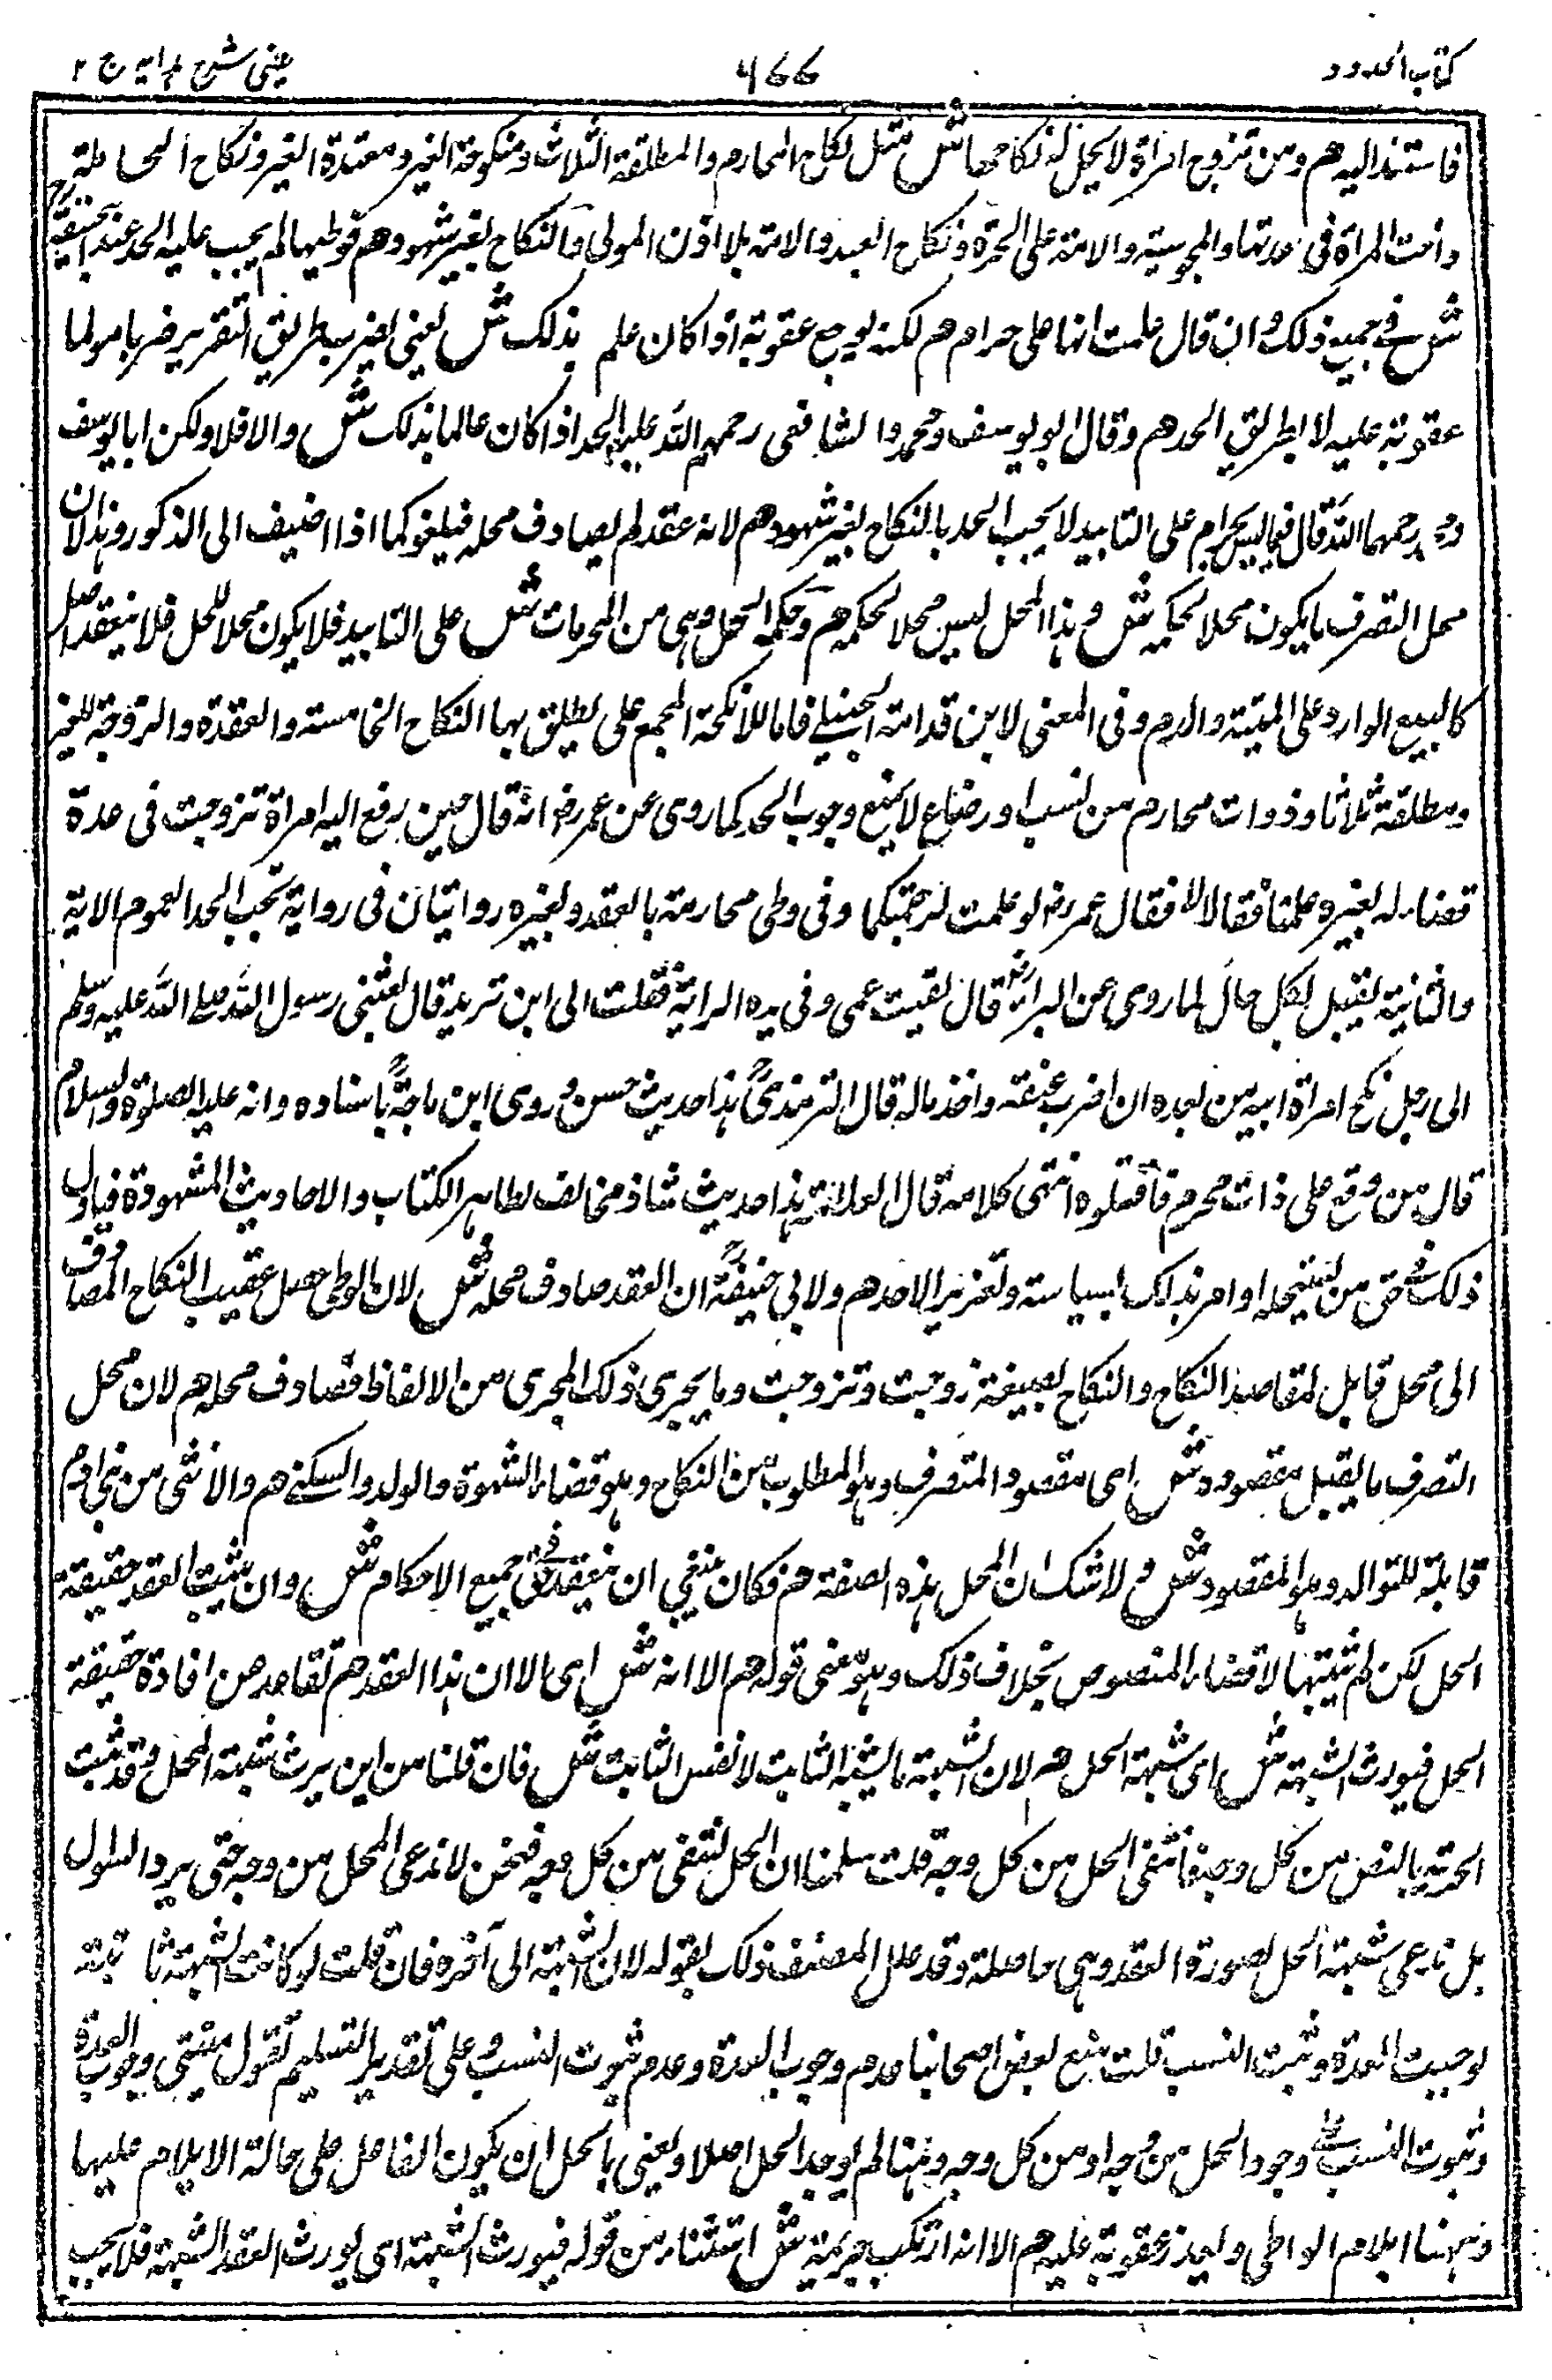 كتاب الحدود
٤٦٦
عینی شرح ہدایہ ج ٢
فاستند اليه هم ومن تزوج امراة لا يحل له نكاحها ش مثل نكاح المحارم والمطلقة الثلاث ومنكوحة الغير ومعتدة الغير ونكاح الخامسة
واخت المراة فى عدتها والمجوسية والامة على الحرة ونكاح العبد والامة بلا اذن المولى والنكاح بغير شهود هم فوطيها لم يجب عليه الحد عند ابيحنيفة
ش فى جميع ذلك وان قال علمت انها على حرام هم لكنه يوجع عقوبة اذا كان علم بذلك ش يعنى يضرب بطريق التعزير ضربا مولما
عقوبة عليه لا بطريق الحد هم وقال ابو يوسف ومحمد والشافعى رحمهم الله عليه الحد اذا كان عالما بذلك ش والا فلا ولكن ابا يوسف
ومحمد رحمهما الله قال فيما ليس بحرام على التابيد لا يجب الحد بالنكاح بغير شهود هم لانه عقد لم يصادف محله فيلغو كما اذا اضيف الى الذكور وهذا لان
محل التصرف ما يكون محلا لحكمه ش وهذا المحل ليس محلا لحكمه هم وحكمه الحل وهى من المحرمات ش على التابيد فلا يكون محلا للحل فلا ينعقد اصلا
كالبيع الوارد على الميتة والدم وفى المغنى لابن قدامة الحنبلي فاما الانكحة المجمع على بها النكاح الخامسة والمعتدة والمزوجة للغير
ومطلقة ثلاثا وذوات محارم من نسب او رضاع لا يمنع وجوب الحد كما روى عن عمر رض انه قال حين رفع اليه امراة تزوجت فى عدة
فقال عمر رض لو علمت لرجمتكما وفى وطى محارمه بالعقد ولغيره روايتان فى رواية يجب الحد لعموم الاية
والثانية يقتل بكل حال لما روى عن البراء رض قال لقيت عمى وفى يده الراية فقلت الى اين تريد قال بعثنى رسول الله صلى الله عليه وسلم
الى رجل نكح امراة ابيه من بعده ان اضرب عنقه واخذ ماله قال الترمذى هذا حديث حسن وروى ابن ماجة باسناده وانه عليه الصلوة والسلام
قال من وقع على ذات محرم فاقتلوه انتهى كلامه قال العلامة هذا حديث شاذ مخالف لظاهر الكتاب والاحاديث المشهورة فياول
ذلك فى حق من يستحله او امر بذلك سياسة وتعزيرا لاحد هم ولابى حنيفة ان العقد صادف محله ش لان الوطى حصل عقيب النكاح المضاف
الى محل قابل لمقاصد النكاح والنكاح بصيغة زوجت وتزوجت وما يجرى ذلك المجرى من الالفاظ فصادف محله هم لان محل
التصرف ما يقبل مقصوده ش اى مقصود المتصرف وهو المطلوب من النكاح وهو قضاء الشهوة والولد والسكنى هم والانثى من بنى ادم
قابلة للتوالد وهو المقصود ش ولا شك ان المحل بهذه الصفة هم فكان ينبغى ان ينعقد فى حق جميع الاحكام ش وان يثبت العقد حقيقة
الحل لكن لم يثبتها لاقتضاء المنصوص بخلاف ذلك وهو معنى قوله هم الا انه ش اى الا ان هذا العقد هم تقاعد عن افادة حقيقة
الحل فيورث الشبهة ش اى شبهة الحل هم لان الشبهة ما يشبه الثابت لا نفس الثابت ش فان قلنا من اين يرث شبهة الحل وقد ثبت
الحرمة بالنص من كل وجه فانتفى الحل من كل وجه قلت سلمنا ان الحل انتفى من كل وجه فنحن لا ندعى الحل من وجه حتى يرد السوال
بل ندعى شبهة الحل بصورة العقد وهى حاصلة وقد علل المصنف ذلك بقوله لان الشبهة الى آخره فان قلت لو كانت الشبهة ثابتة
لوجبت العدة وثبت النسب قلت منع بعض اصحابنا عدم وجوب العدة وعدم ثبوت النسب وعلى تقدير التسليم نقول مبنى وجوب العدة
وثبوت النسب على وجود الحل من وجه او من كل وجه وههنا لم يوجد الحل اصلا ويعنى بالحل ان يكون الفاعل على حالة لا يلام عليها
وههنا يلام الواطى ويعذر عقوبة عليه هم الا انه ارتكب جريمة ش استثناء من قوله فيورث الشبهة اى يورث العقد الشبهة فلا يجب